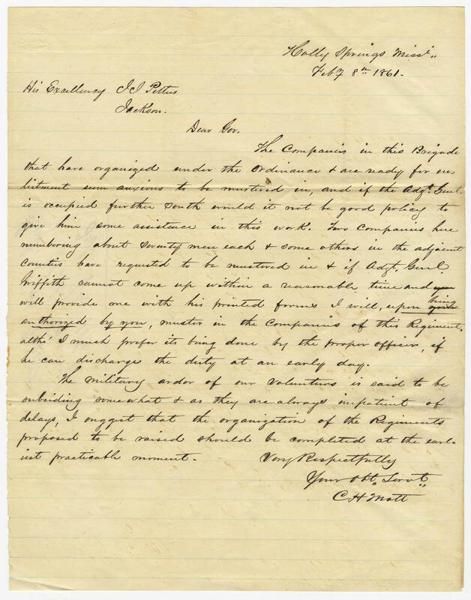 Holly Springs Missi.
Feby 8th 1861.
His Excellency J J Pettus
Jackson.
Dear Gov.
The Companies in this Brigade
that have organized under the Ordinance & are ready for en-
listment seem anxious to be mustered in, and if the Adgt. Genl.
is occupied further South would it not be good policy to
give him some assistance in this work. Two Companies here
numbering about Seventy men each & some others in the adjacent
Counties have requested to be mustered in & if Adgt. Genl.
Griffith cannot come up within a reasonable time and
will provide me with his printed forms I will, upon being
authorized by you, muster in the Companies of this Regiment,
altho' I much prefer its being done by the proper officer, if
he can discharge the duty at an early day.
The military ardor of our Volunteers is said to be
subsiding somewhat & as they are always impatient of
delays, I suggest that the organization of the Regiments
proposed to be raised should be completed at the earl-
iest practicable moment. Very Respectfully
Your Obt. Servt.
C H Mott